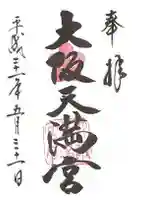 奉拝
大阪天満宮
平成三十一年五月三十一日